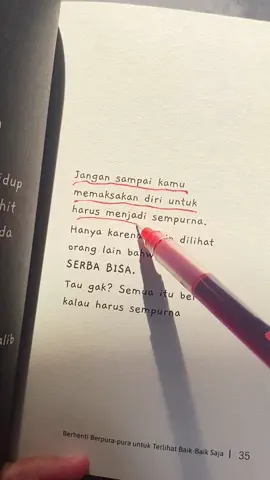 idup
hit
da
alib
Jangan sampai kamu
memaksakan diri untuk
harus menjadi sempurna.
Hanya karena dilihat
orang lain bahw
SERBA BISA.
Tau gak? Semua itu be
kalau harus sempurna
Berhenti Berpura-pura untuk Terlihat Baik-Baik Saja | 35